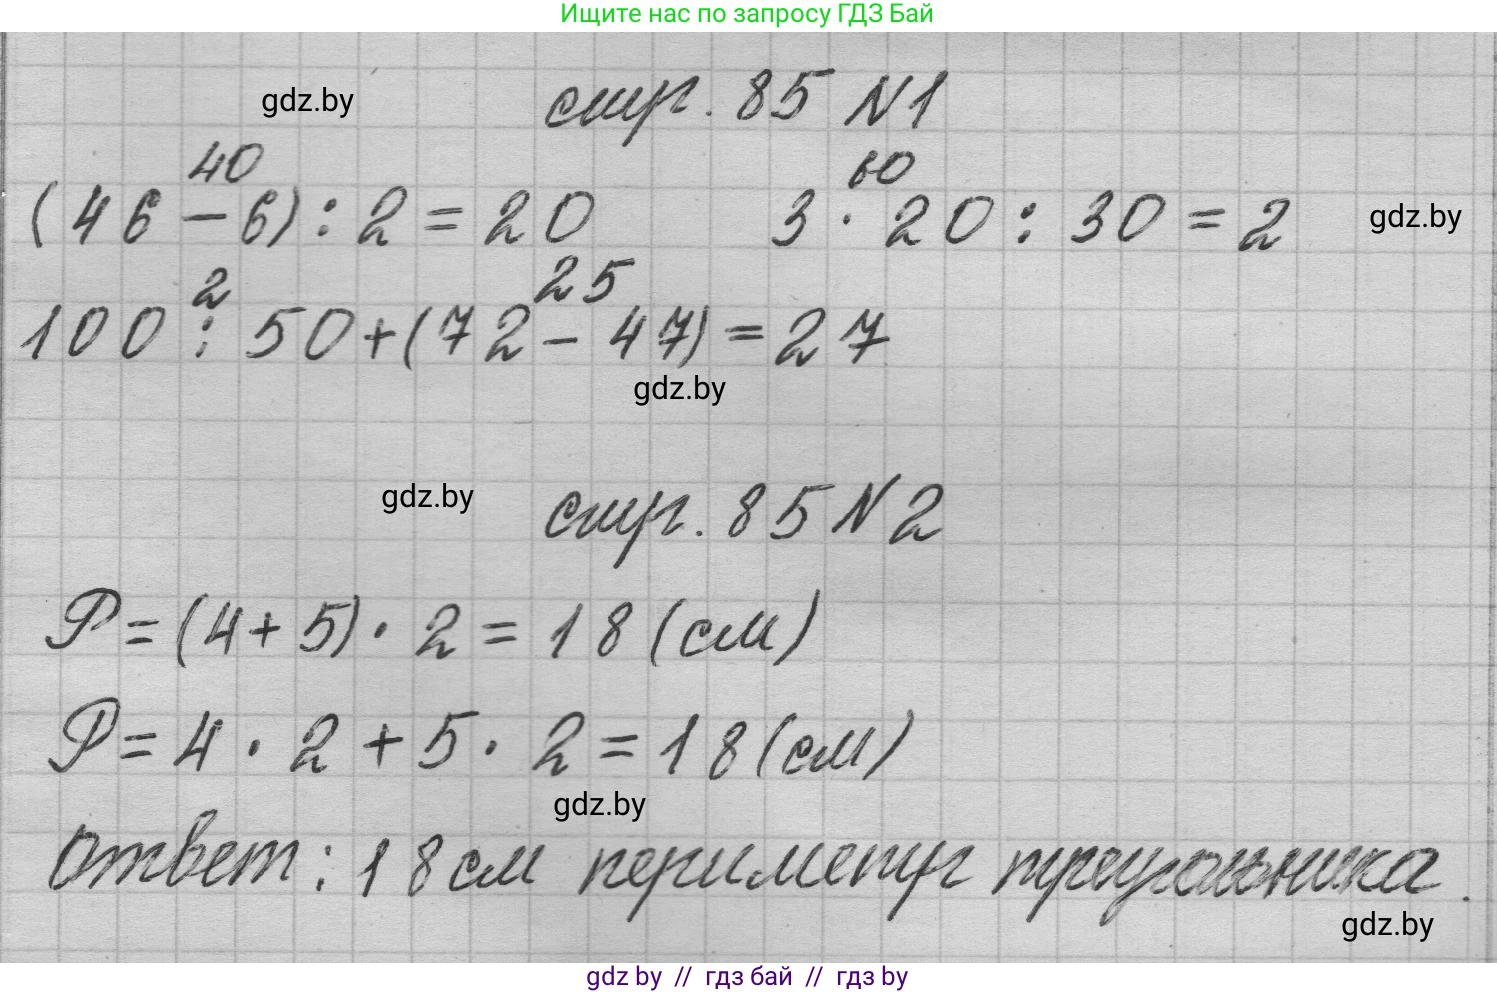 Ищите нас по запросу ГДЗ Бай
gdz.by
стр. 85 N1
40
60
(46 - 6) : 2 = 20
3 · 20 : 30 = 2
gdz.by
2
25
100 : 50 + (72 - 47) = 27
gdz.by
gdz.by
стр. 85 N2
P = (4 + 5) · 2 = 18 (см)
P = 4 · 2 + 5 · 2 = 18 (см)
gdz.by
Ответ: 18 см периметр треугольника.
gdz.by
gdz.by // гдз бай // гдз by